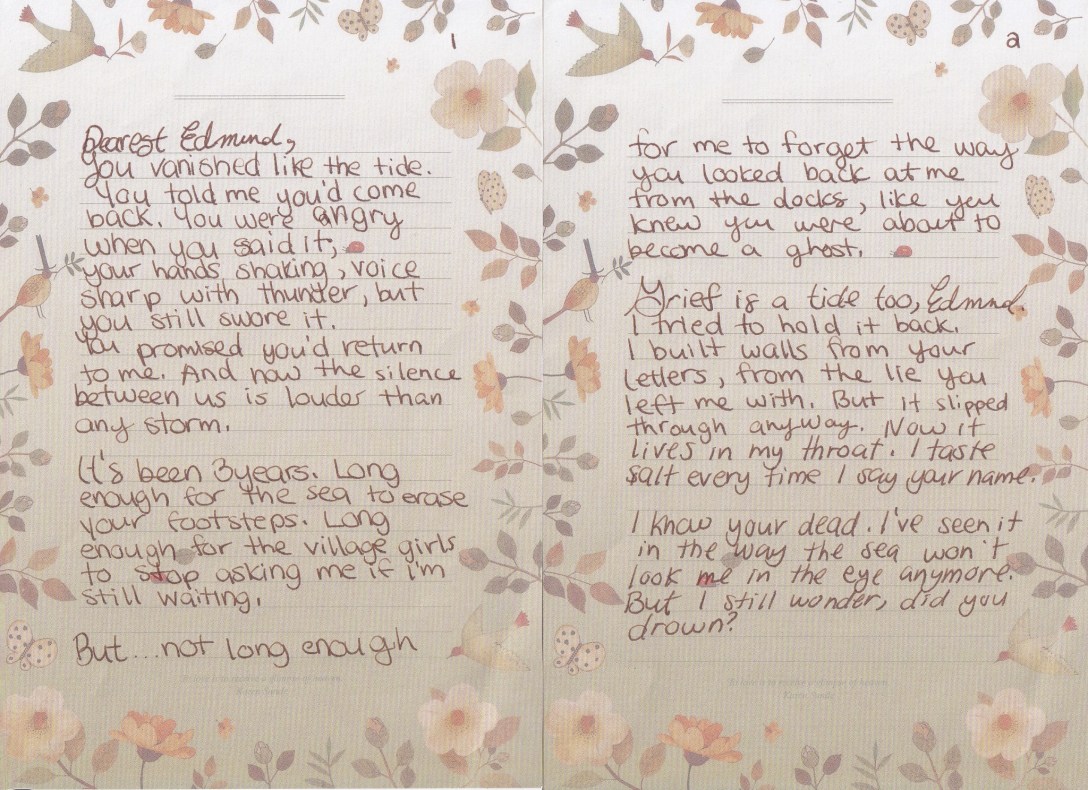 1
Dearest Edmund,
you vanished like the tide.
You told me you'd come
back. You were angry
when you said it,
your hands shaking, voice
sharp with thunder, but
you still swore it.
You promised you'd return
to me. And now the silence
between us is louder than
any storm.
It's been 3 years. Long
enough for the sea to erase
your footsteps. Long
enough for the village girls
to stop asking me if i'm
still waiting.
But...not long enough
a
for me to forget the way
you looked back at me
from the docks, like you
knew you were about to
become a ghost.
Grief is a tide too, Edmund.
I tried to hold it back.
I built walls from your
letters, from the lie you
left me with. But it slipped
through anyway. Now it
lives in my throat. I taste
salt every time I say your name.
I know your dead. I've seen it
in the way the sea won't
look me in the eye anymore.
But I still wonder, did you
drown?